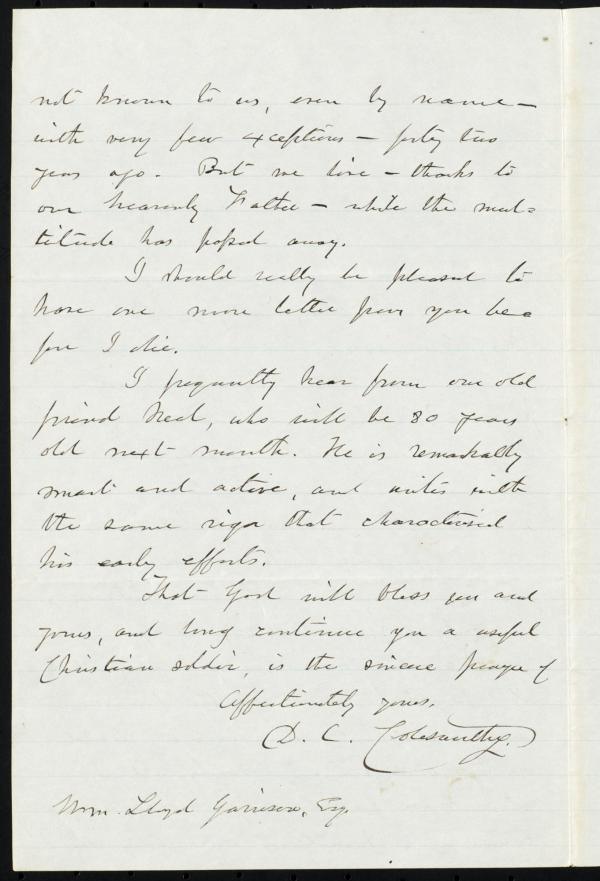 not known to us, even by name —
with very few exceptions — forty two
years ago. But we live — thanks to
our heavenly Father — while the mul=
titude has passed away.
I should really be pleased to
have one more letter from you be=
fore I die.
I frequently hear from our old
friend Neal, who will be 80 years
old next month. He is remarkably
smart and active, and writes with
the same vigor that characterised
his early efforts.
That God will bless you and
yours, and long continue you a useful
Christian soldier, is the sincere prayer of
Affectionately yours,
D. C. Colesworthy.
Wm. Lloyd Garrison, Esq.